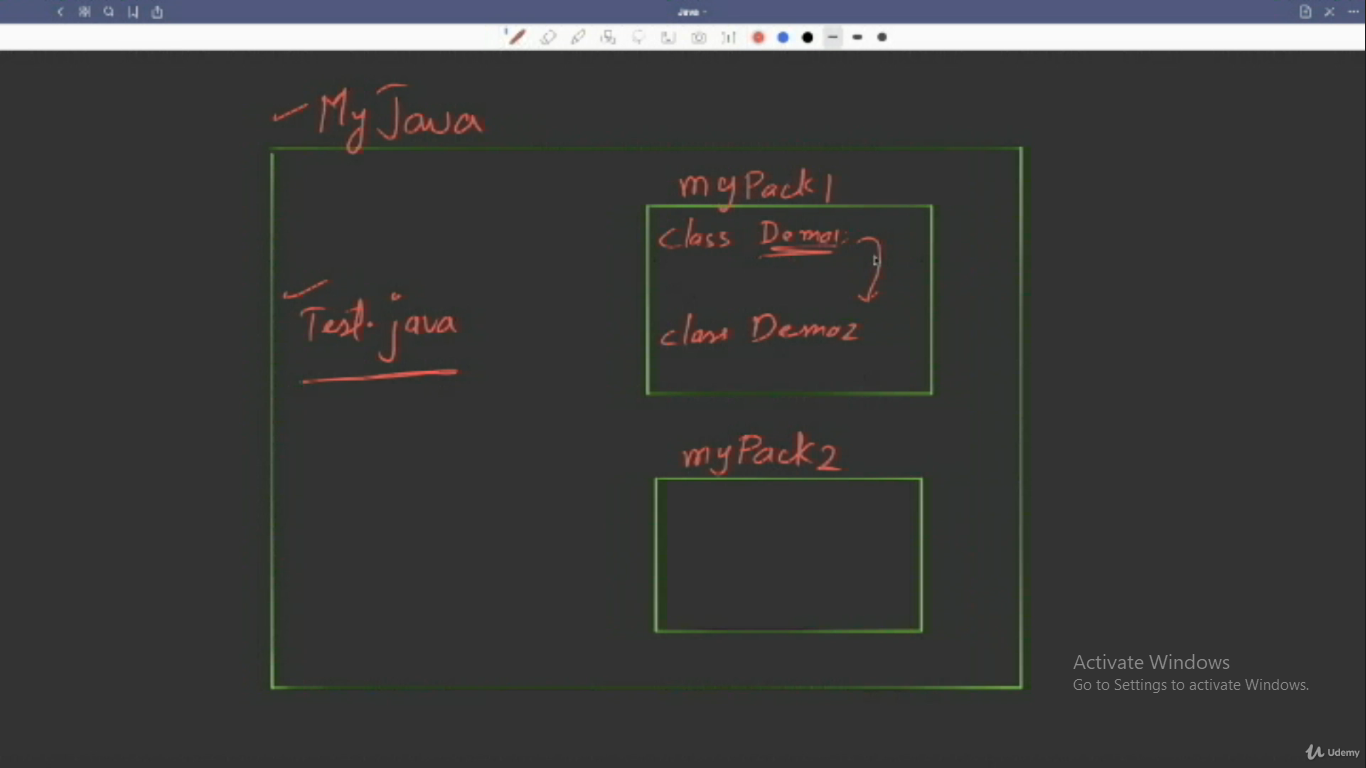 Java
My Java
myPack1
class Demo1
Test.java
class Demo2
myPack2
Activate Windows
Go to Settings to activate Windows.
Udemy